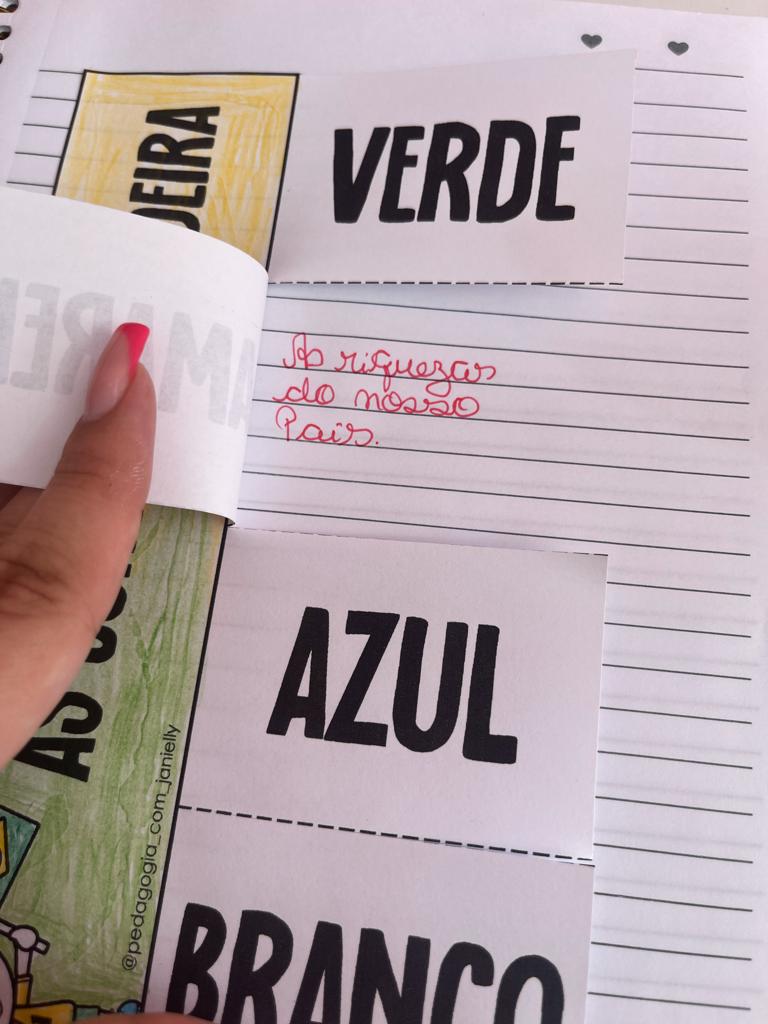 DEIRA
VERDE
AMAREL
As riquezas
do nosso
País.
AZUL
AS COR
@pedagogia_com_janielly
BRANCO